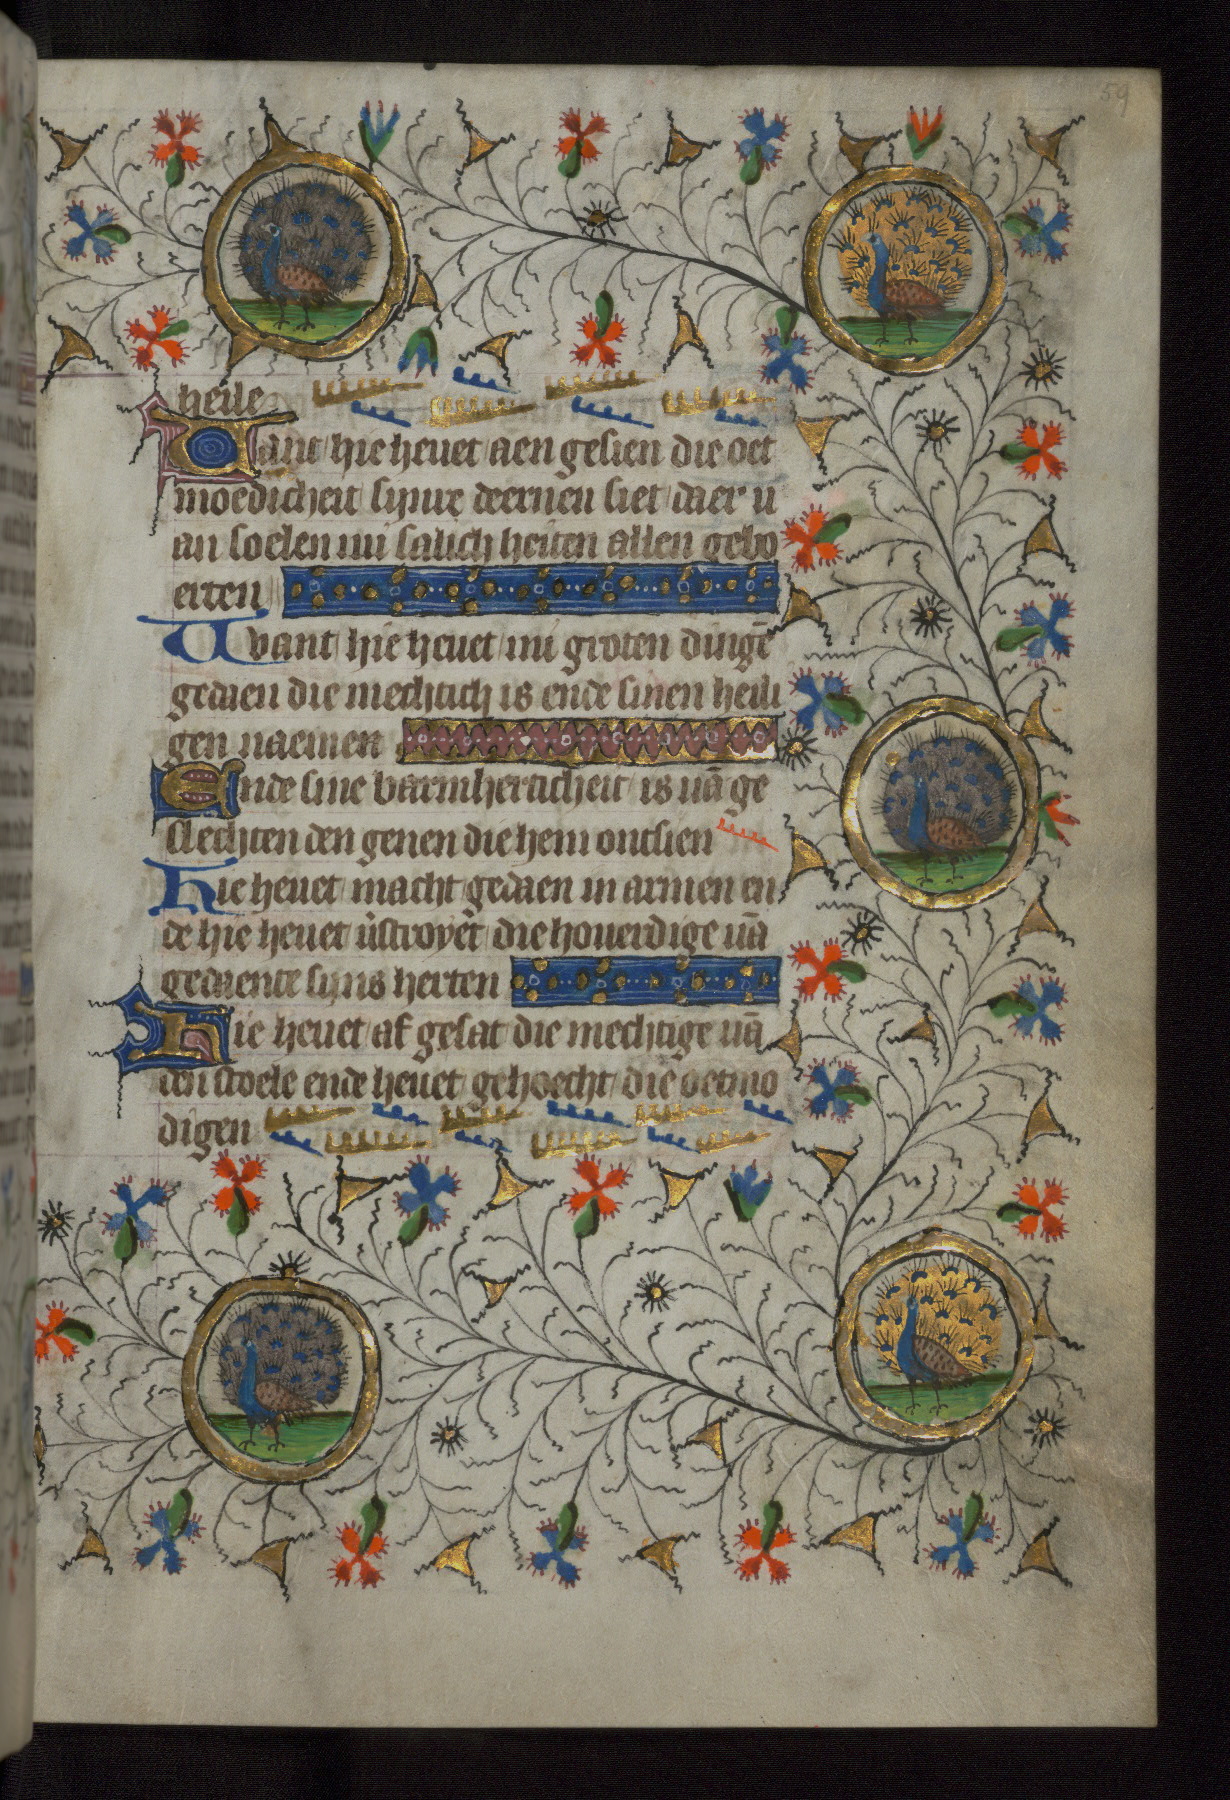 59
heile
Want hie heuet aen gesien die oet
moedicheit sijnre deernen siet daer u
an soelen mi salich heiten allen gebo
erten
Want hie heuet mi groten dingē
gedaen die mechtich is ende sinen heili
gen naemen
Ende sine barmherticheit is uā ge
slechten den genen die hem ontsien
Hie heuet macht gedaen in armen en
de hie heuet u̔stroyet die houerdige uā
gedaente sijns herten
Hie heuet af gesat die mechtige uā
den stoele ende heuet gehoecht die oetmo
digen